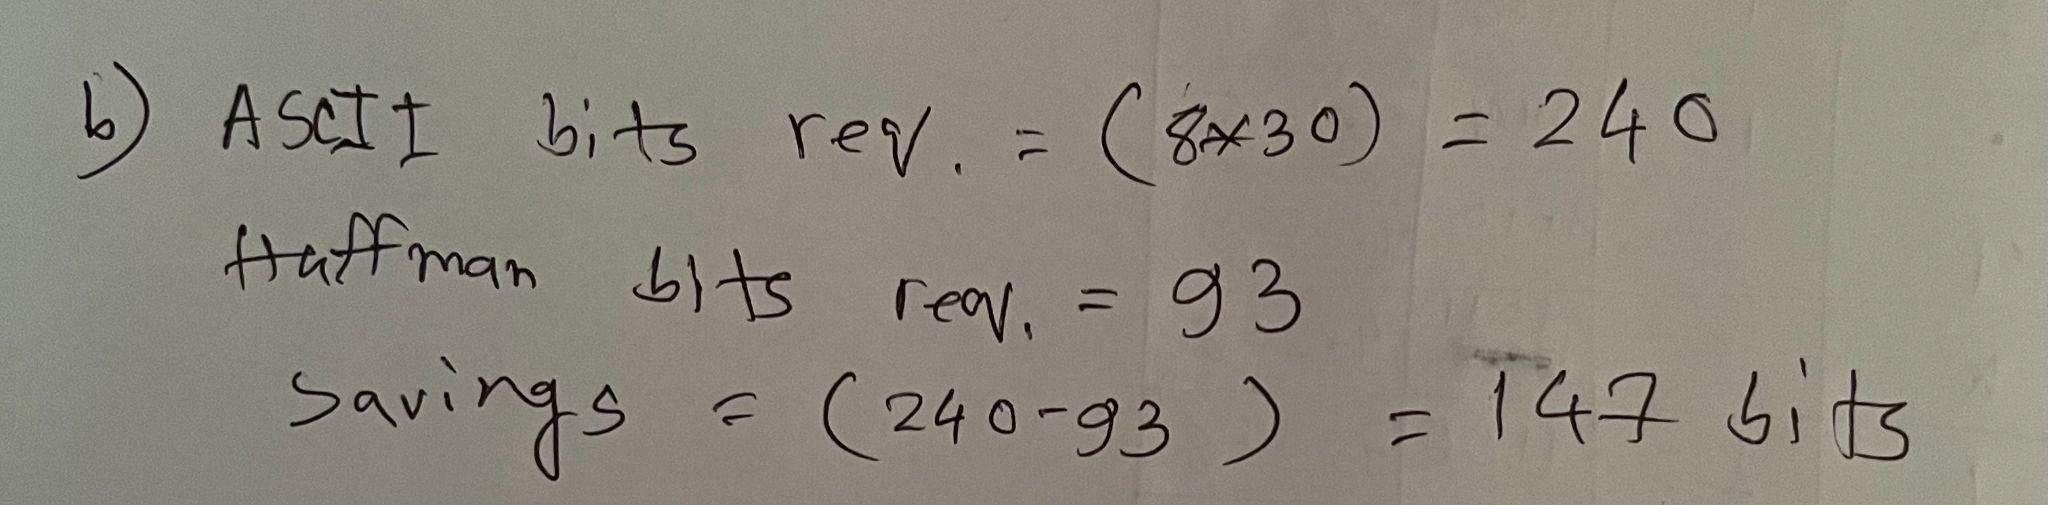 b) ASCII bits req. = (8*30) = 240
Huffman bits req. = 93
Savings = (240-93) = 147 bits